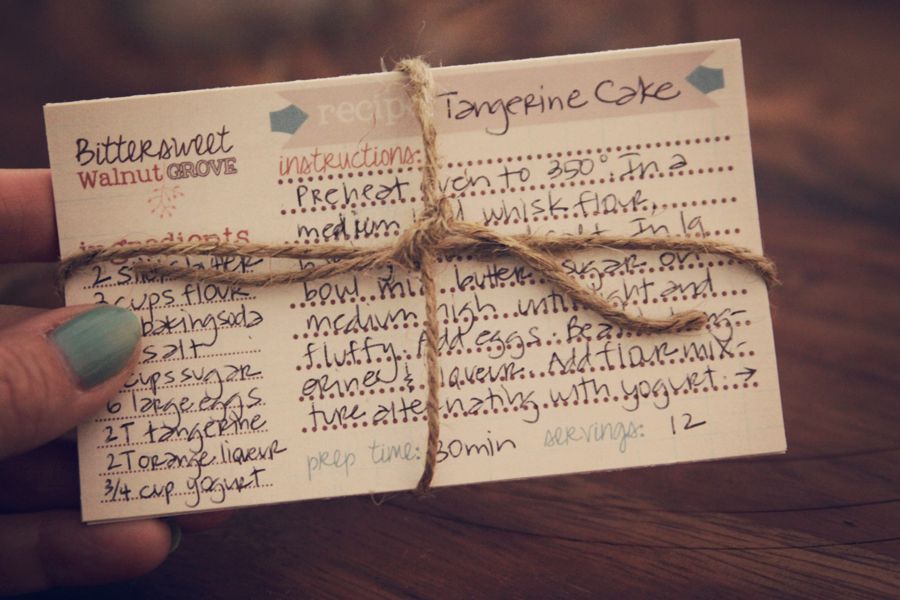 recipe Tangerine Cake
Bittersweet
Walnut GROVE
ingredients
2 sticks butter
3 cups flour
baking soda
salt
cups sugar
6 large eggs
2T tangerine
2T orange liqueur
3/4 cup yogurt
instructions:
Preheat oven to 350°. In a
medium bowl whisk flour,
salt. In lg
bowl mix butter sugar on
medium high until light and
fluffy. Add eggs. Beat tang-
erine & liqueur. Add flour mix-
ture alternating with yogurt. →
prep time: 30min servings: 12